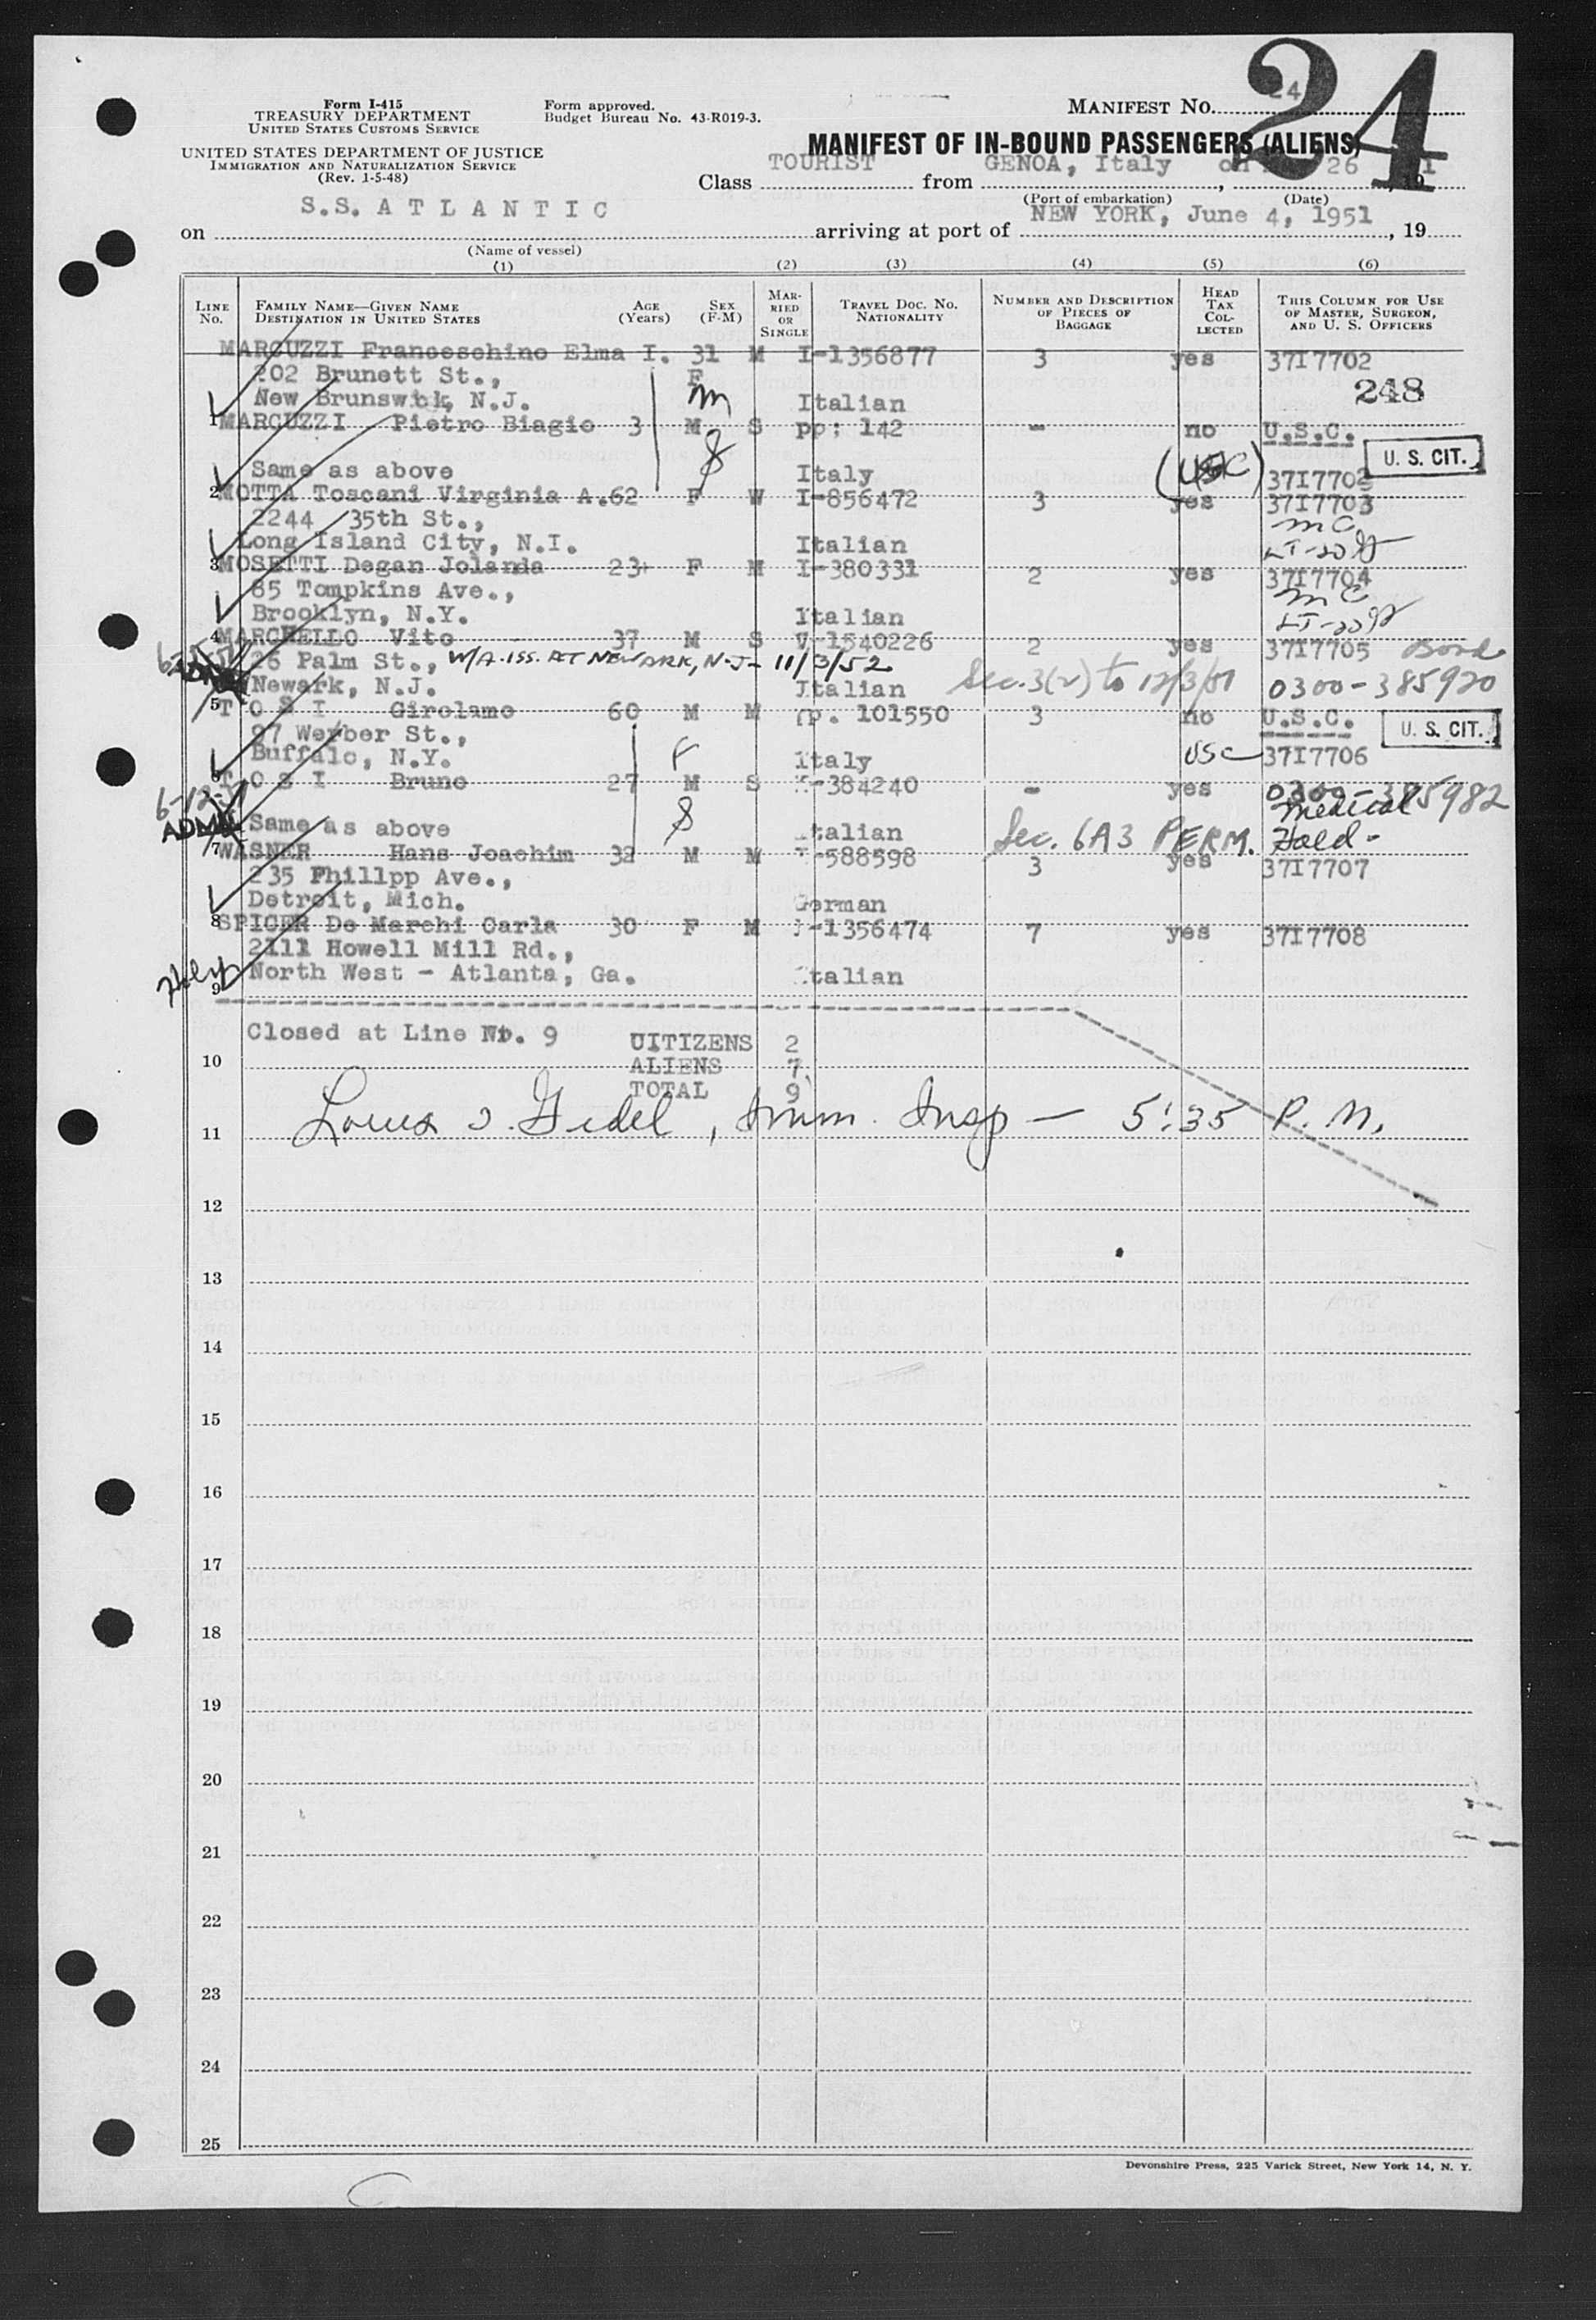 24
Form I-415
TREASURY DEPARTMENT
UNITED STATES CUSTOMS SERVICE
Form approved.
Budget Bureau No. 43-R019-3.
MANIFEST NO. 24
UNITED STATES DEPARTMENT OF JUSTICE
IMMIGRATION AND NATURALIZATION SERVICE
(Rev. 1-5-48)
MANIFEST OF IN-BOUND PASSENGERS (ALIENS)
Class TOURIST from GENOA, Italy on 26, 19
(Port of embarkation) (Date)
on S.S. A T L A N T I C arriving at port of NEW YORK, June 4, 1951, 19
(Name of vessel)
(1) (2) (3) (4) (5) (6)
LINE NO. FAMILY NAME—GIVEN NAME DESTINATION IN UNITED STATES AGE (Years) SEX (F-M) MARRIED OR SINGLE TRAVEL DOC. NO. NATIONALITY NUMBER AND DESCRIPTION OF PIECES OF BAGGAGE HEAD TAX COLLECTED THIS COLUMN FOR USE OF MASTER, SURGEON, AND U. S. OFFICERS
MARCUZZI Franceschino Elma I. 31 M I-1356877 3 yes 37I7702
202 Brunett St., F
248
New Brunswick, N.J. m Italian
1 MARCUZZI Pietro Biagio 3 M S pp: 142 - no U.S.C.
U. S. CIT.
Same as above S Italy (USC) 37I7702
2 MOTTA Toscani Virginia A. 62 F W I-856472 3 yes 37I7703
2244 35th St.,
Long Island City, N.I. Italian
3 MOSETTI Degan Jolanda 23 F M I-380331 2 yes 37I7704
85 Tompkins Ave.,
Brooklyn, N.Y. Italian
4 MARCHELLO Vito 37 M S V-1540226 2 yes 37I7705 Bond
26 Palm St., W/A. ISS. AT NEWARK, N.J- 11/3/52
Newark, N.J. Italian Sec. 3(2) to 12/3/51 0300-385920
5 T O S I Girolamo 60 M M pp. 101550 3 no U.S.C.
U. S. CIT.
97 Werber St.,
Buffalo, N.Y. F Italy USC 37I7706
6 T O S I Bruno 27 M S -384240 - yes 0300-385982
Medical
Same as above S Italian Sec. 6A3 PERM. Hold-
7 WASNER Hans Joachim 32 M M -588598 3 yes 37I7707
235 Phillpp Ave.,
Detroit, Mich. German
8 SPICER De Marchi Carla 30 F M -1356474 7 yes 37I7708
2111 Howell Mill Rd.,
North West - Atlanta, Ga. Italian
9
Closed at Line No. 9
UITIZENS 2
10 ALIENS 7
TOTAL 9
11 Imm. Insp — 5:35 P.M.
12
13
14
15
16
17
18
19
20
21
22
23
24
25
Devonshire Press, 225 Varick Street, New York 14, N. Y.